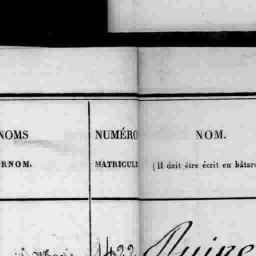 NOMS NUMÉRO NOM.
RNOM. MATRICULE (Il doit être écrit en bâtar
1422